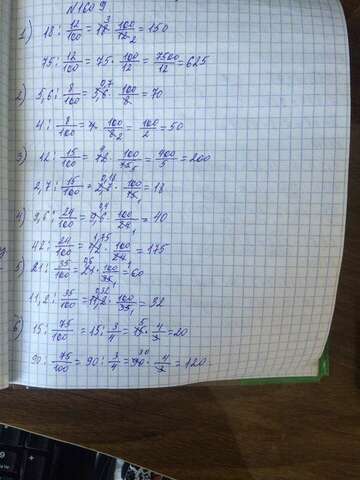 № 1609
1) 18 : 12/100 = 18 3 · 100/12 2 = 150
75 : 12/100 = 75 · 100/12 = 7500/12 = 625
2) 5,6 : 8/100 = 5,6 0,7 · 100/8 = 70
4 : 8/100 = 4 · 100/8 2 = 100/2 = 50
3) 12 : 15/100 = 12 · 100/15 5 = 900/5 = 200
2,7 : 15/100 = 2,7 0,18 · 100/15 1 = 18
4) 9,6 : 24/100 = 9,6 0,4 · 100/24 1 = 40
42 : 24/100 = 42 1,75 · 100/24 = 175
5) 21 : 35/100 = 21 0,6 · 100/35 1 = 60
11,2 : 35/100 = 11,2 0,32 · 100/35 1 = 32
6) 15 : 75/100 = 15 : 3/4 = 15 5 · 4/3 = 20
90 : 75/100 = 90 : 3/4 = 90 30 · 4/3 = 120